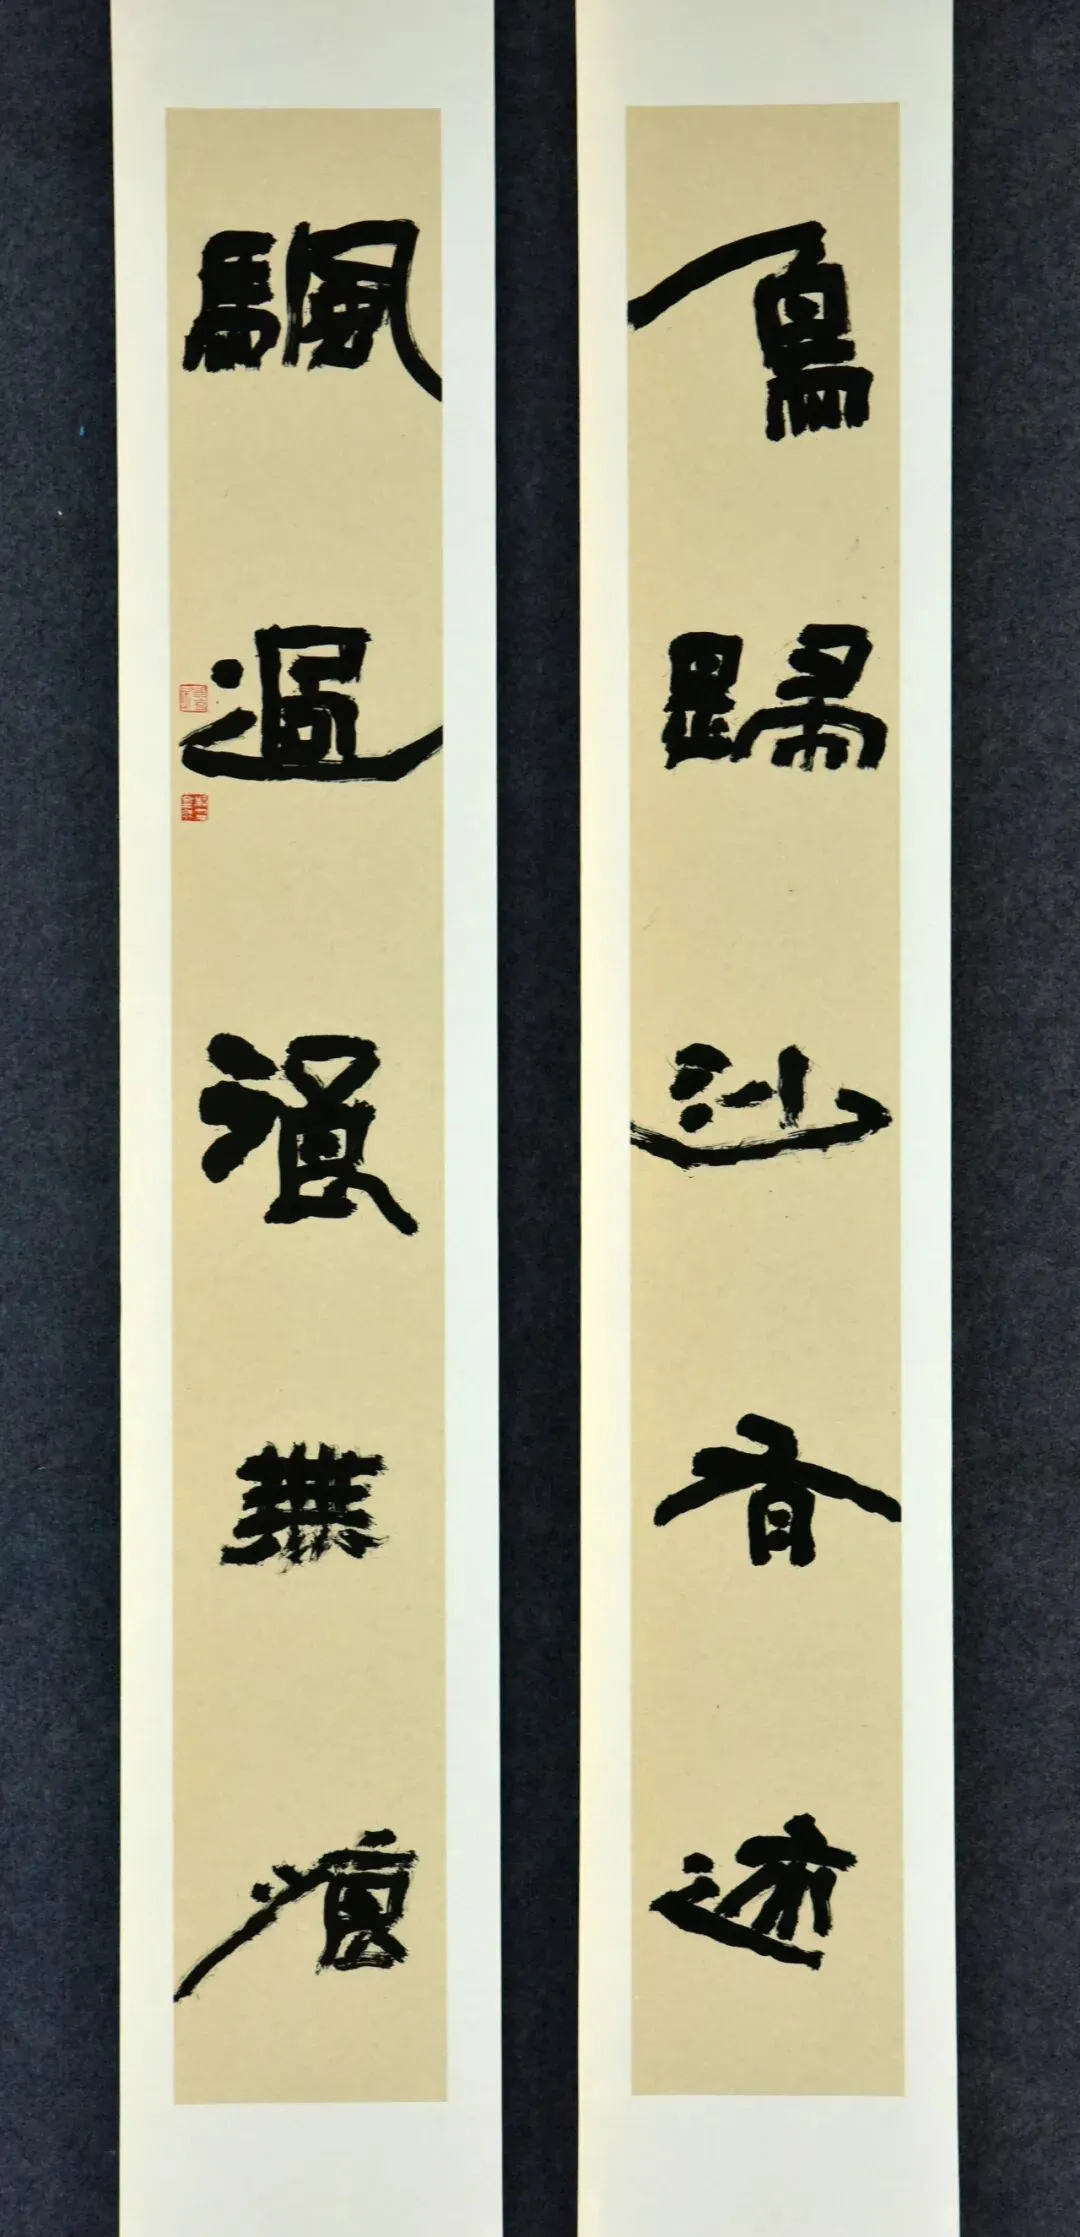 鳥歸沙有迹
颿過浪無痕